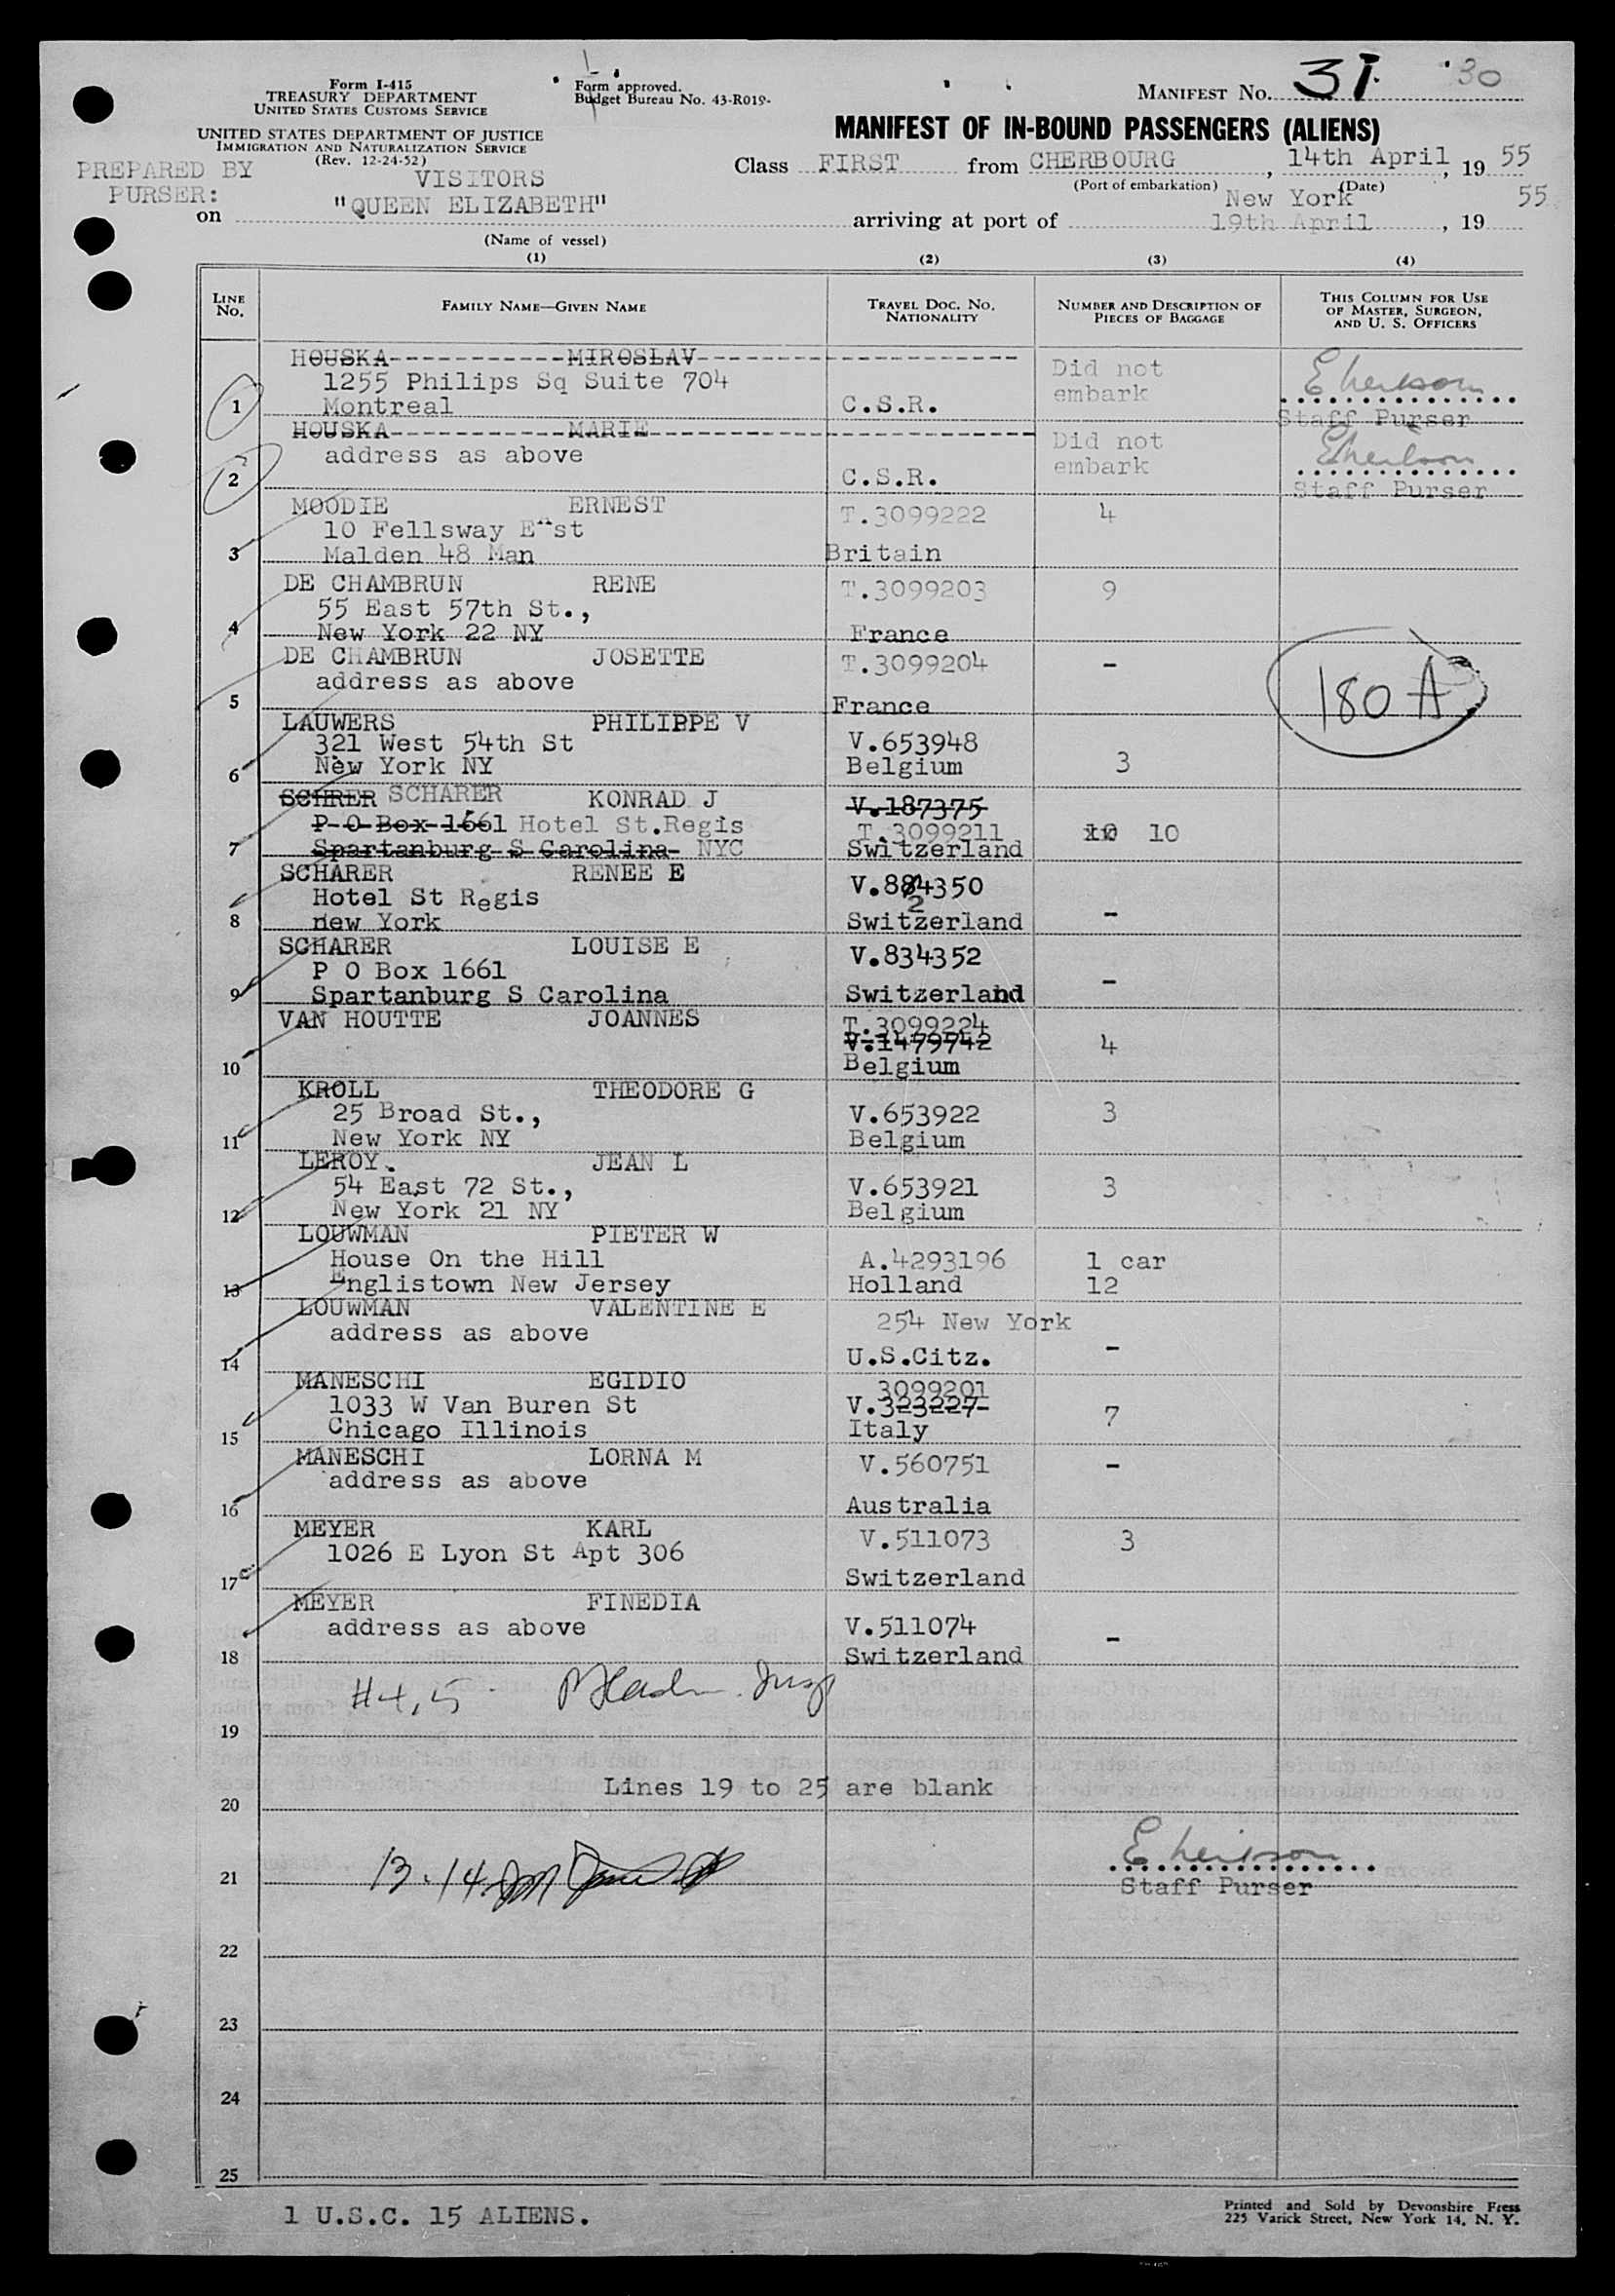 Form I-415
TREASURY DEPARTMENT
UNITED STATES CUSTOMS SERVICE
UNITED STATES DEPARTMENT OF JUSTICE
IMMIGRATION AND NATURALIZATION SERVICE
(Rev. 12-24-52)
Form approved.
Budget Bureau No. 43-R019-
MANIFEST No. 31 30
MANIFEST OF IN-BOUND PASSENGERS (ALIENS)
PREPARED BY
PURSER:
VISITORS
Class FIRST from CHERBOURG, 14th April, 19 55
(Port of embarkation) (Date)
on "QUEEN ELIZABETH" arriving at port of New York 19th April, 19 55
(Name of vessel)
(1) (2) (3) (4)
LINE No. FAMILY NAME—GIVEN NAME TRAVEL DOC. NO. NATIONALITY NUMBER AND DESCRIPTION OF PIECES OF BAGGAGE THIS COLUMN FOR USE OF MASTER, SURGEON, AND U. S. OFFICERS
HOUSKA MIROSLAV Did not
1255 Philips Sq Suite 704 embark
1 Montreal C.S.R. Staff Purser
HOUSKA MARIE Did not
address as above embark
2 C.S.R. Staff Purser
MOODIE ERNEST T.3099222 4
10 Fellsway East
3 Malden 48 Man Britain
DE CHAMBRUN RENE T.3099203 9
55 East 57th St.,
4 New York 22 NY France
DE CHAMBRUN JOSETTE T.3099204 -
address as above 180 A
5 France
LAUWERS PHILIPPE V
321 West 54th St V.653948
6 New York NY Belgium 3
SCHRER SCHARER KONRAD J V.187375
P O Box 1661 Hotel St.Regis T.3099211 10 10
7 Spartanburg S Carolina NYC Switzerland
SCHARER RENEE E V.884350
Hotel St Regis 2
8 new York Switzerland -
SCHARER LOUISE E V.834352
P O Box 1661 -
9 Spartanburg S Carolina Switzerland
VAN HOUTTE JOANNES T.3099224
V.1479742 4
10 Belgium
KROLL THEODORE G
25 Broad St., V.653922 3
11 New York NY Belgium
LEROY. JEAN L
54 East 72 St., V.653921 3
12 New York 21 NY Belgium
LOUWMAN PIETER W
House On the Hill A.4293196 1 car
13 Englistown New Jersey Holland 12
LOUWMAN VALENTINE E 254 New York
address as above -
14 U.S.Citz.
MANESCHI EGIDIO 3099201
1033 W Van Buren St V.323227 7
15 Chicago Illinois Italy
MANESCHI LORNA M V.560751 -
address as above
16 Australia
MEYER KARL V.511073 3
1026 E Lyon St Apt 306
17 Switzerland
MEYER FINEDIA
address as above V.511074 -
18 Switzerland
#4,5
19
Lines 19 to 25 are blank
20
13.14
21 Staff Purser
22
23
24
25
1 U.S.C. 15 ALIENS.
Printed and Sold by Devonshire Press
225 Varick Street, New York 14, N. Y.